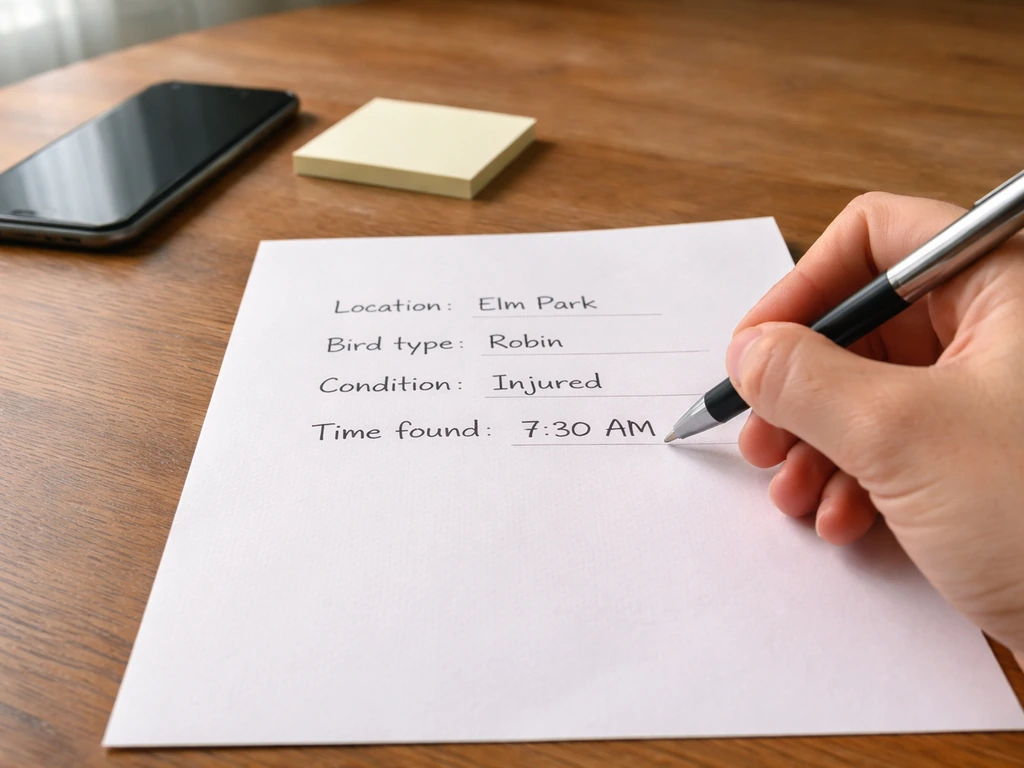 Location: Elm Park
Bird type: Robin
Condition: Injured
Time found: 7:30 AM